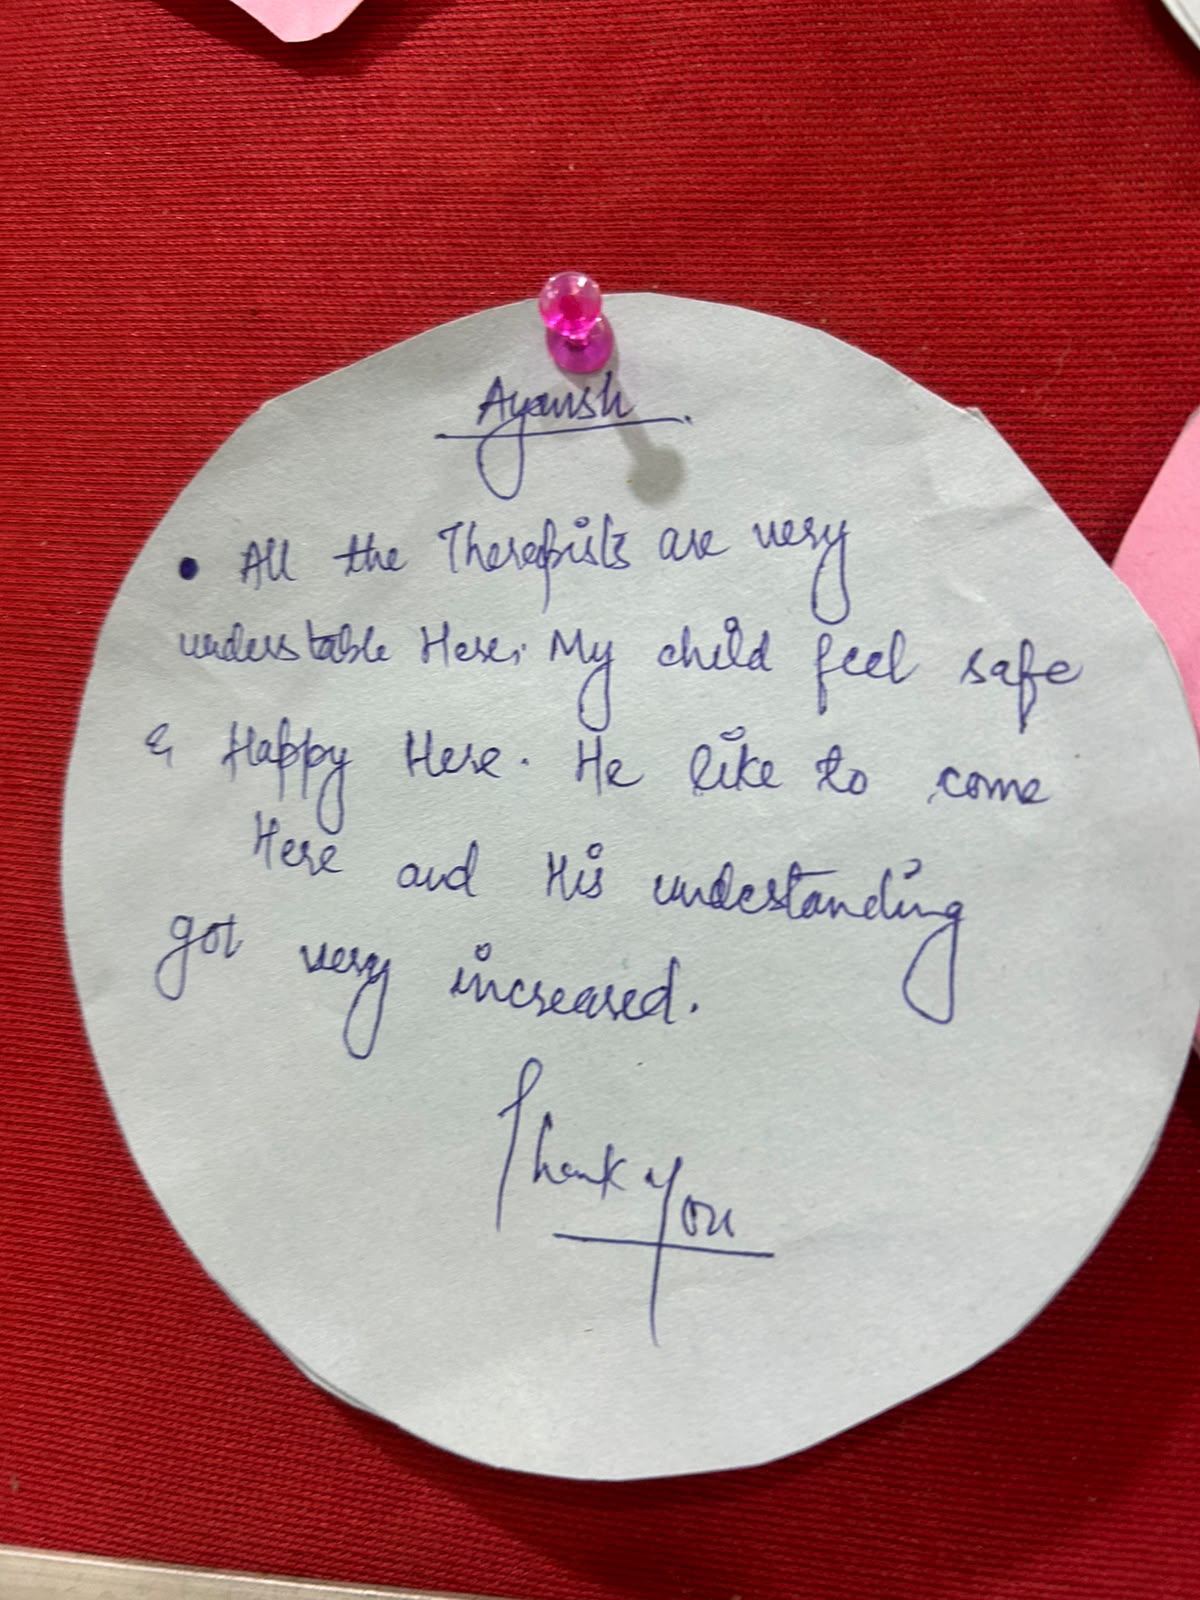 Ayansh.
• All the Therapists are very
understable Here. My child feel safe
& Happy Here. He like to come
Here and His undestanding
got very increased.
Thank you